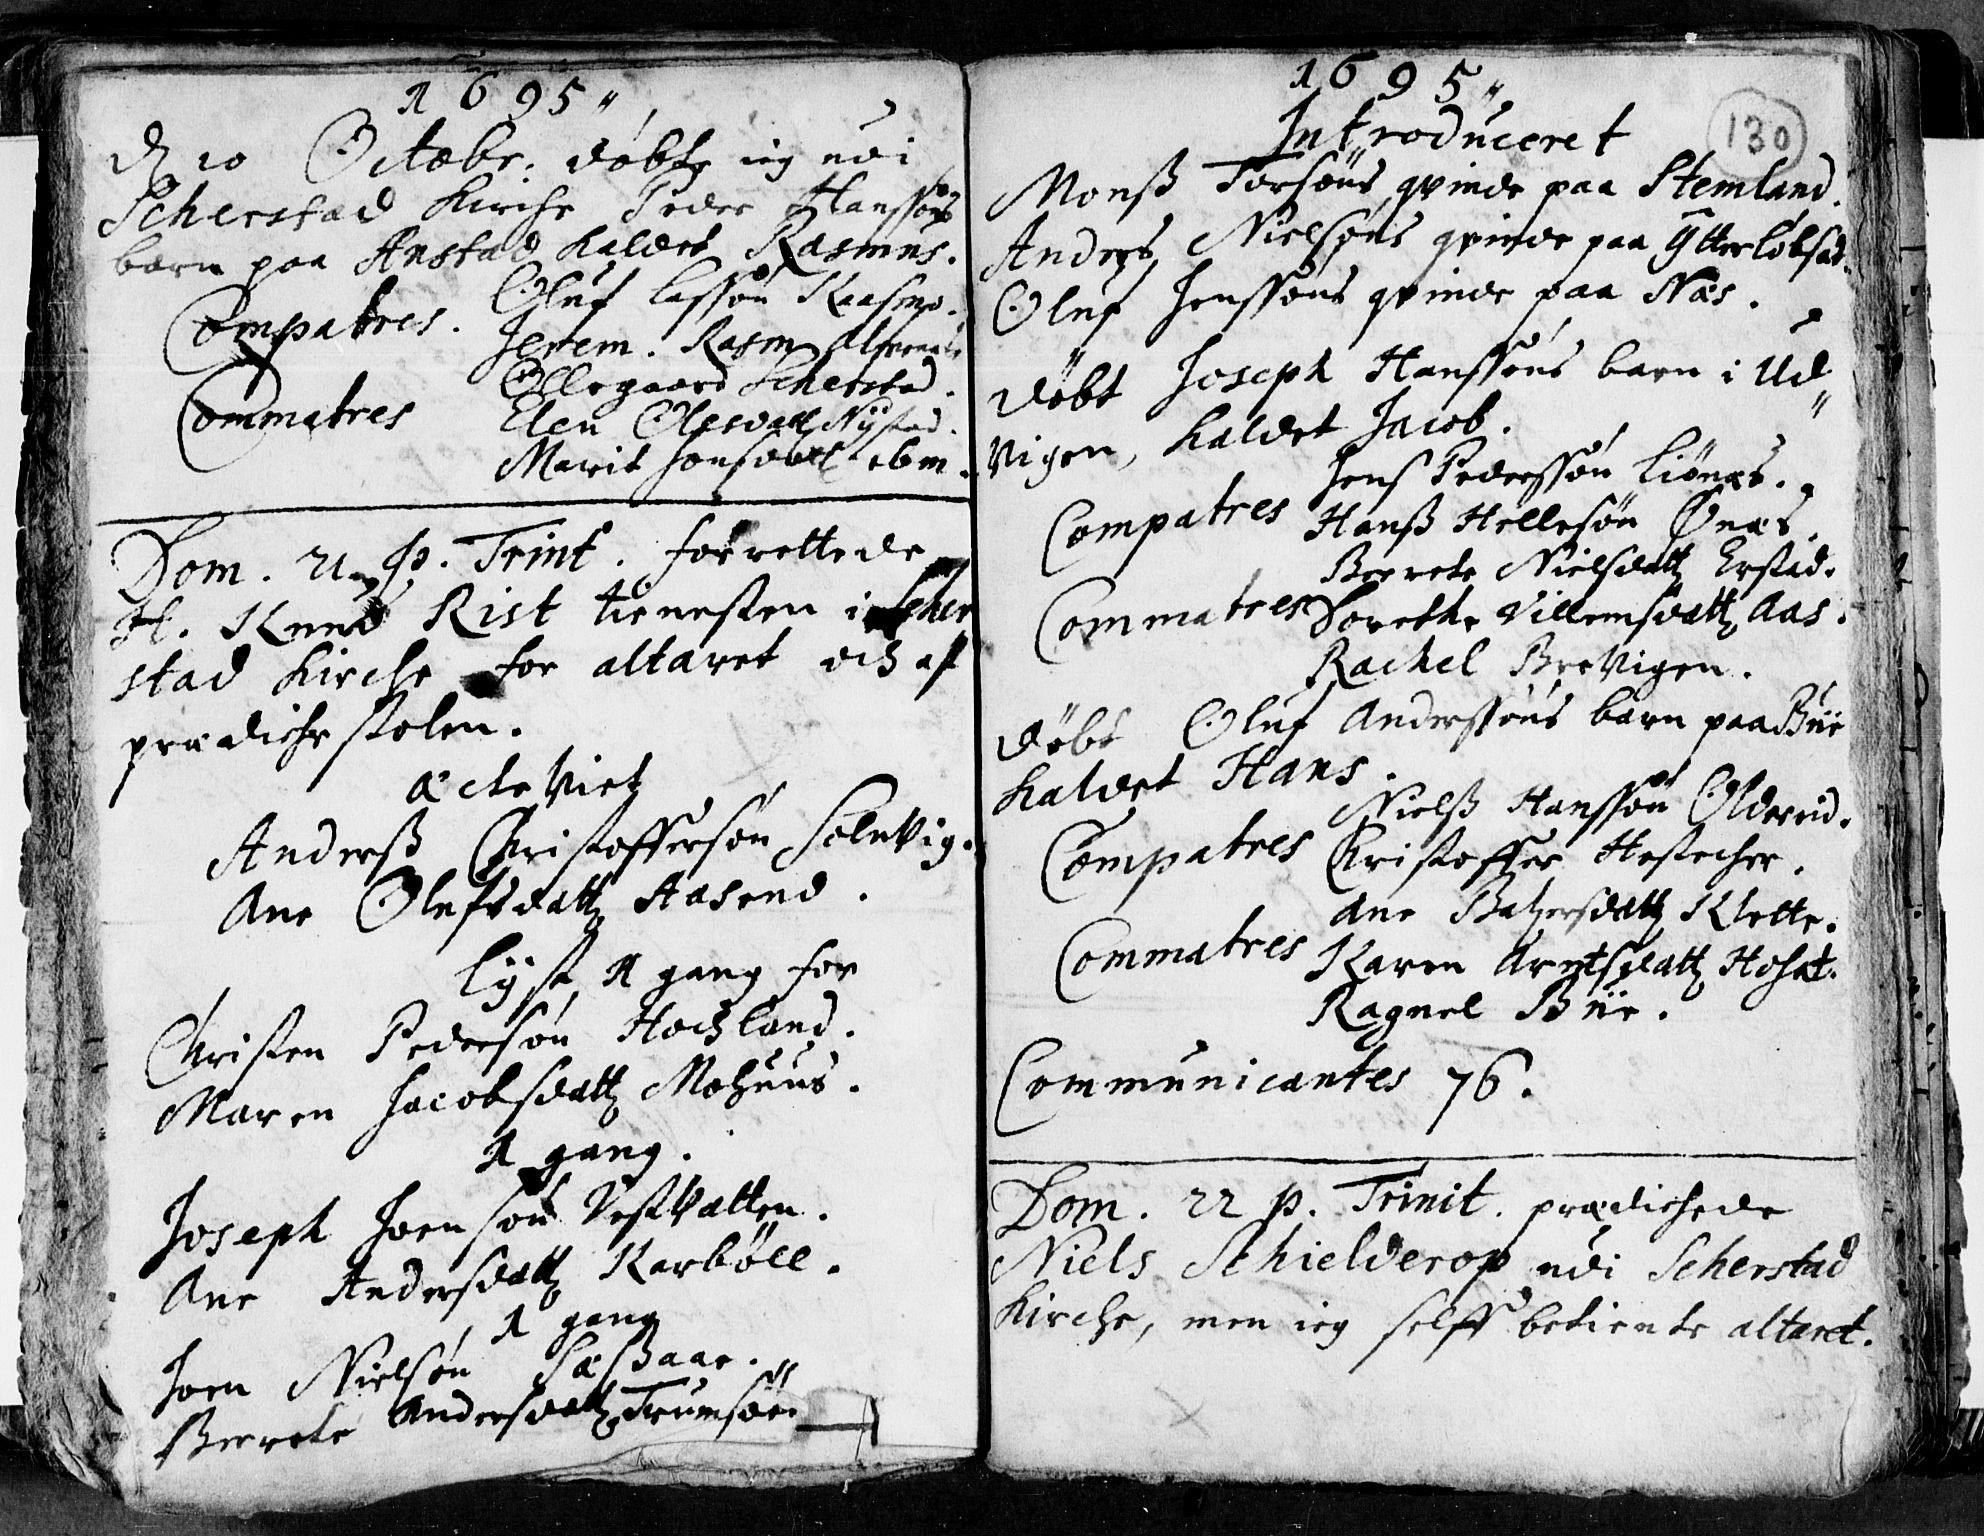 1695"
D. 10 Octobr. døbte ieg udi
Scherstad Kirche Peder Hanssøns
barn paa Anstad kaldet Rasmus.
Compatres. Oluf Lassøn Kaasmo.
Jerem. Rasm.
Commatres Ollegaard Scherstad.
Elen Olesdatt Nystad.
Marit Jonsdatt ibm.
Dom. 21 p. Trinit. forrettede
H. Knud Rist tienesten i Scher
stad Kirche for altaret och af
prædiche stolen.
ægte Viet
Anderß Christoffersøn Solvig.
Ane Olufsdatt Aasend.
lyst 1 gang for
Christen Pedersøn Hochland.
Maren Jacobsdatt Mohuus.
1 gang.
Joseph Joensøn Vestvatten.
Ane Andersdatt Karbøll.
1 gang
Joen Nielsøn Sæßaae.
Berete Andersdatt Trumsøe.
1695"
Introduceret
130
Monß Torsøns qvinde paa Stemland.
Anders Nielsøns qvinde paa Ytterløbsad.
Oluf Jenssøns qvinde paa Næs.
døbt Joseph Hanssøns barn i Ud"
vigen, kaldet Jacob.
Jens Pederssøn Liønæs.
Compatres Hanß Hellesøn Ønæs.
Berete Nielsdatt Erstad.
Commatres Dorethe Villemsdatt Aas.
Rachel Brevigen.
døbt Oluf Anderssøns barn paa Biie
kaldet Hans.
Nielß Hanssøn Oldereid.
Compatres Christoffer Hestecher.
Ane Balzersdatt Klette.
Commatres Karen Arntsdatt Hosat.
Ragnel Biie.
Communicantes 76.
Dom. 22 p. Trinit. prædichede
Niels Schielderop udi Scherstad
Kirche, men ieg selff betiente altaret.